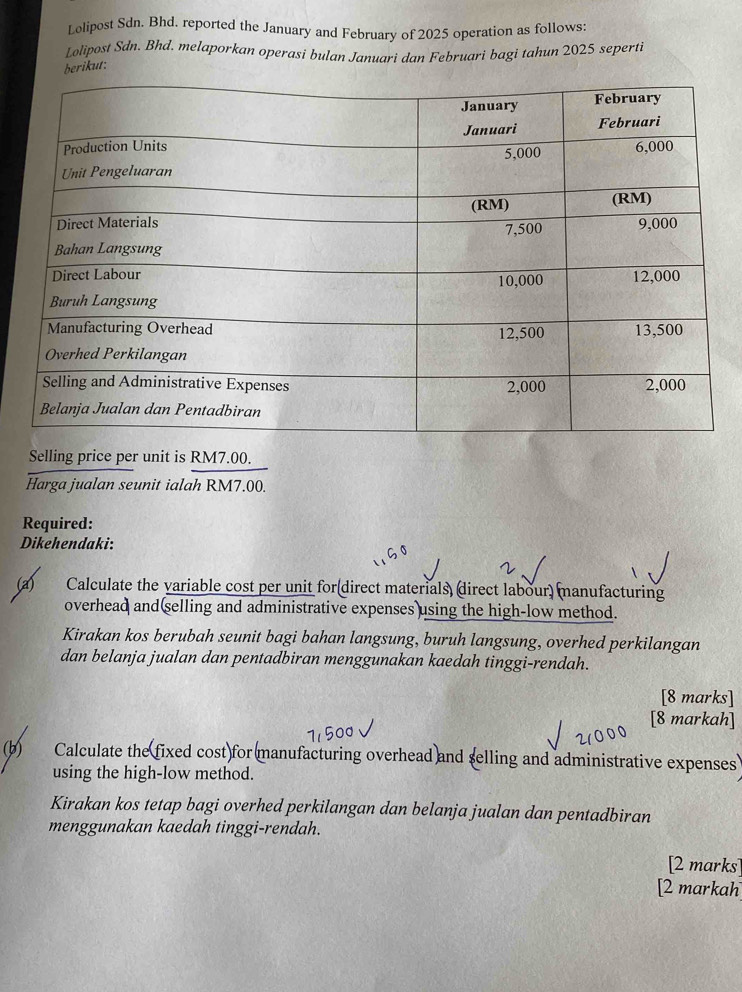 Lolipost Sdn. Bhd. reported the January and February of 2025 operation as follows:
Lolipost Sdn. Bhd. melaporkan operasi bulan Januari dan Februari bagi tahun 2025 seperti
berikut:
January February
Januari Februari
Production Units 5,000 6,000
Unit Pengeluaran
(RM) (RM)
Direct Materials 7,500 9,000
Bahan Langsung
Direct Labour 10,000 12,000
Buruh Langsung
Manufacturing Overhead 12,500 13,500
Overhed Perkilangan
Selling and Administrative Expenses 2,000 2,000
Belanja Jualan dan Pentadbiran
Selling price per unit is RM7.00.
Harga jualan seunit ialah RM7.00.
Required:
Dikehendaki:
1,50 2 1
(a) Calculate the variable cost per unit for direct materials, direct labour, manufacturing
overhead and selling and administrative expenses using the high-low method.
Kirakan kos berubah seunit bagi bahan langsung, buruh langsung, overhed perkilangan
dan belanja jualan dan pentadbiran menggunakan kaedah tinggi-rendah.
[8 marks]
[8 markah]
7,500 2,000
(b) Calculate the fixed cost for manufacturing overhead and selling and administrative expenses
using the high-low method.
Kirakan kos tetap bagi overhed perkilangan dan belanja jualan dan pentadbiran
menggunakan kaedah tinggi-rendah.
[2 marks]
[2 markah